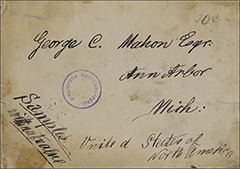 30c
George C. Mahon Esqr.
Ann Arbor
Mich:
United States of
North America
Samples